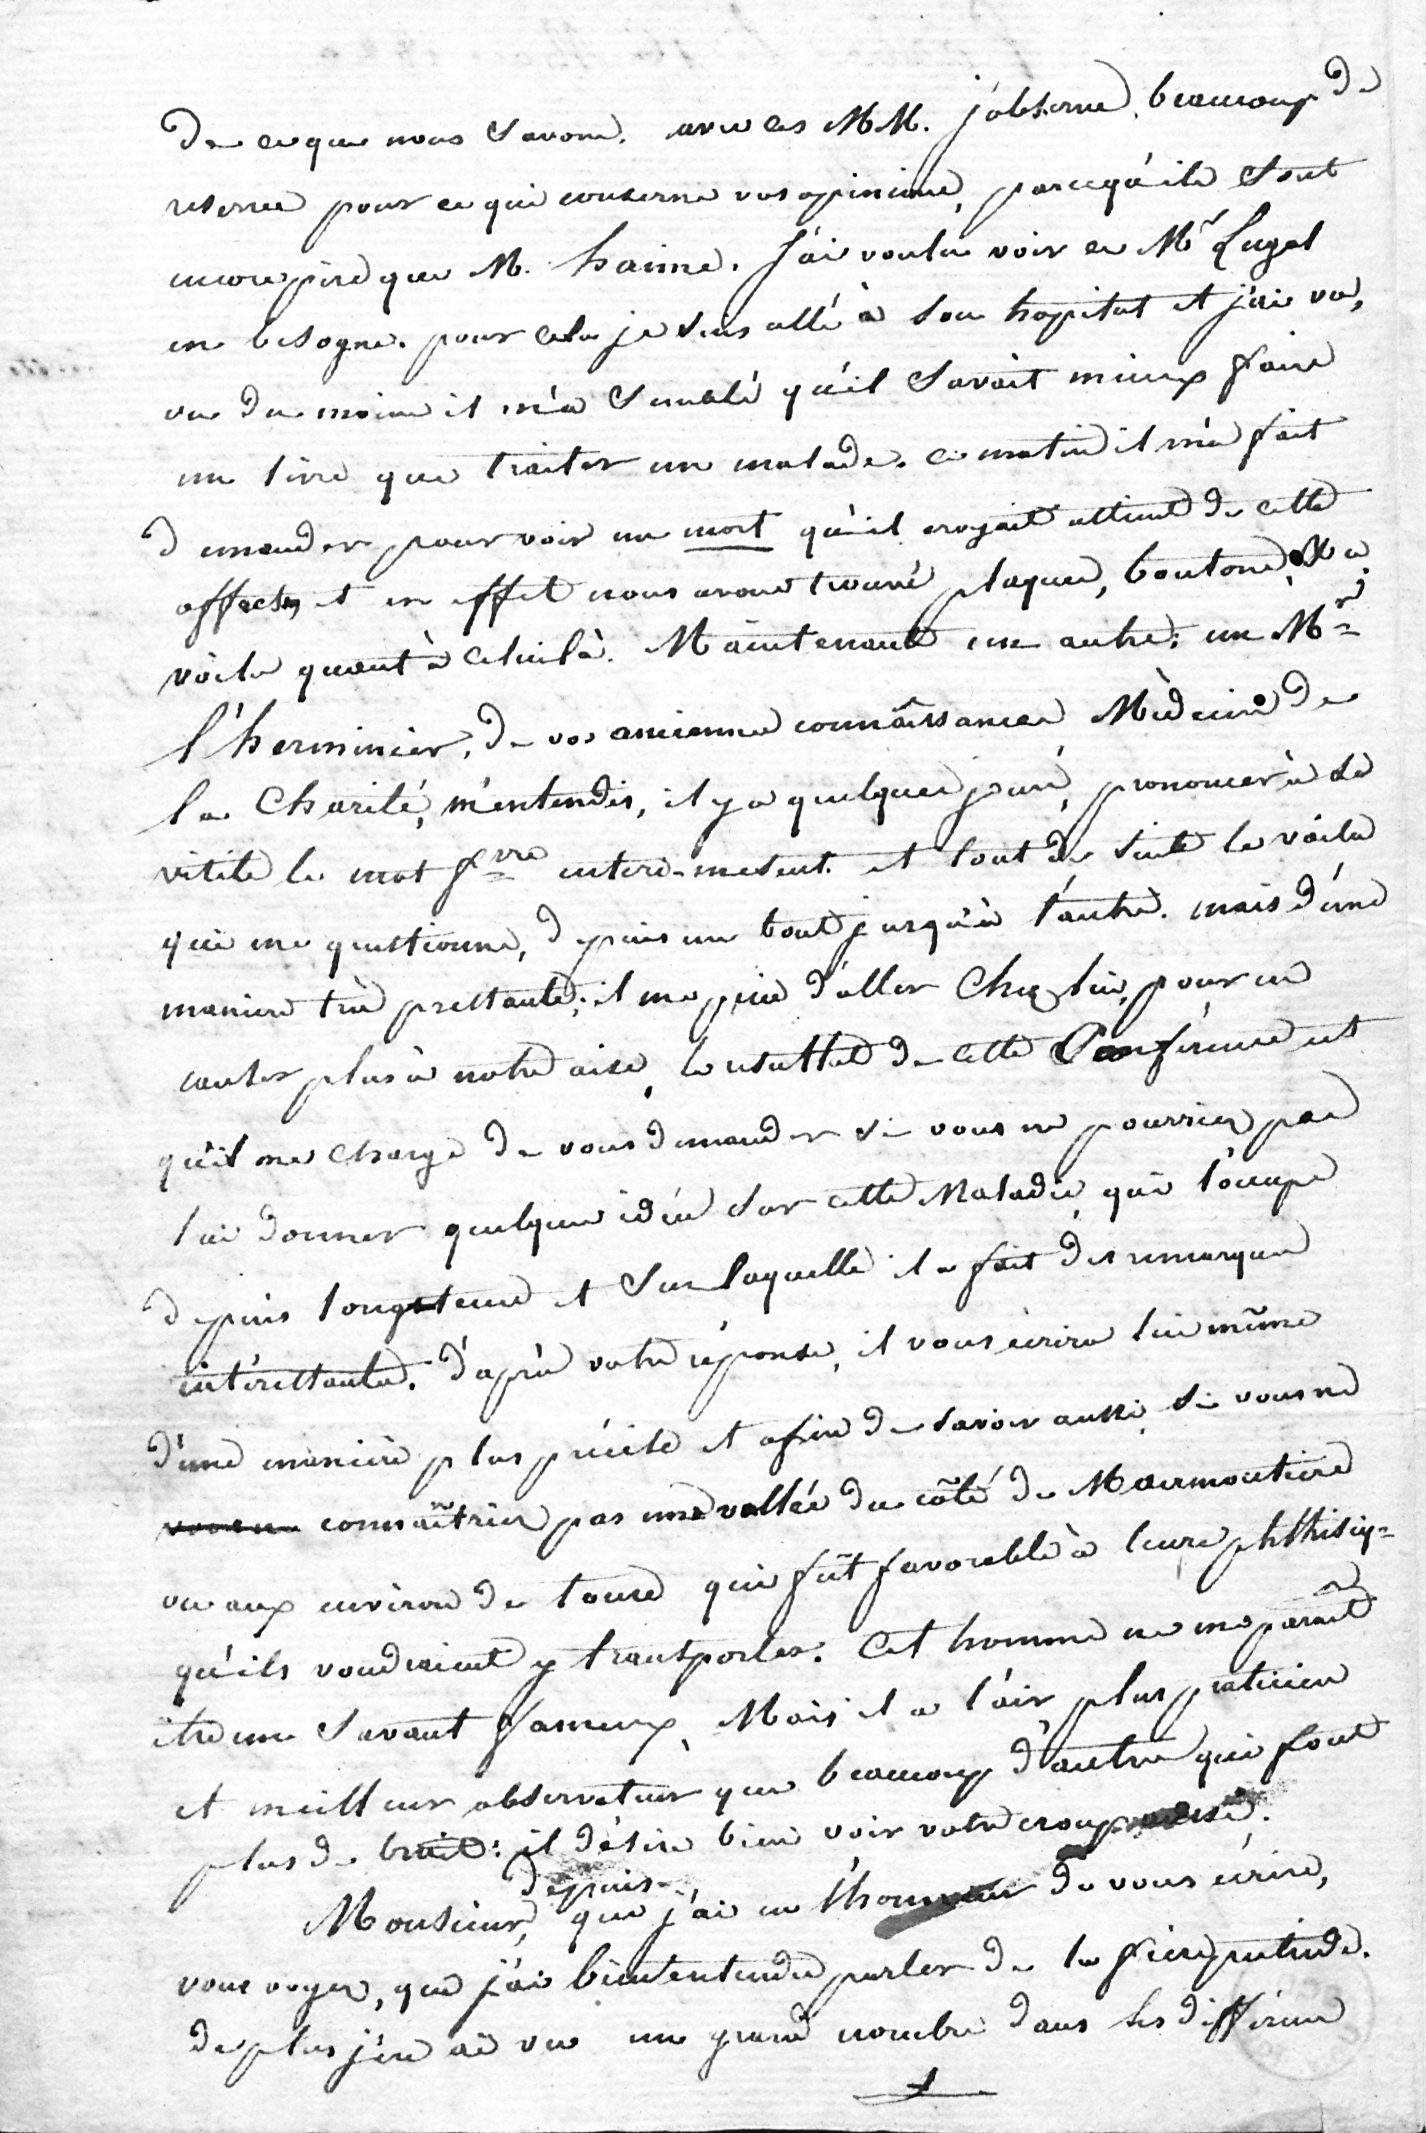 De ce que nous savons. avec ces MM. j'observe beaucoup de
reserve pour ce qui conserne vos opinions, parcequ'ils sont
encore pire que M. haime. J'ai voulu voir ce Mr Lugol
en besogne. pour cela je suis allé à son hopital et j'ai vu,
ou du moins il m'a semblé qu'il savait mieux faire
un livre que traiter un malade. ce matin il m'a fait
demander pour voir un mort qu'il croyait atteint de cette
affectn et en effet nous avons trouvé plaques, boutons &a
voila quant à celui là. Maintenant un autre: un Mr
l'herminier, de vos anciennes connaîssances Mèdecin de
la Charité, m'entendis, il y a quelques jours, prononcer à sa
visite le mot fvre entero-mesent. et tout de suite le voila
qui me questionne, depuis un bout jusqu'à l'autre. mais d'une
maniere très pressante; il me prie d'aller Chez lui, pour en
causer plus à notre aise, le resultat de cette Conférence est
qu'il me charge de vous demander si vous ne pourriez pas
lui donner quelques idées sur cette Maladie qui l'occupe
depuis longtems et sur laquelle il a fait des remarques
intéressantes. D'après votre réponse, il vous écrira lui même
d'une manière plus précise et afin de savoir aussi si vous ne
connaîtriez pas une vallée du côté de Marmoutiers
ou aux environs de tours qui fût favorable à leurs phthisiq=
qu'ils voudraient y transporter. Cet homme ne me paraît
être un savant fameux, Mais il a l'air plus praticien
et meilleur observateur que beaucoup d'autres qui font
plus de bruit: il désire bien voir votre croup
depuis
Monsieur, que j'ai eu l'honneur de vous écrire,
vous voyez, que j'ai bien entendu parler de la fièvre putride.
de plus j'en ai vu un grand nombre dans les différens